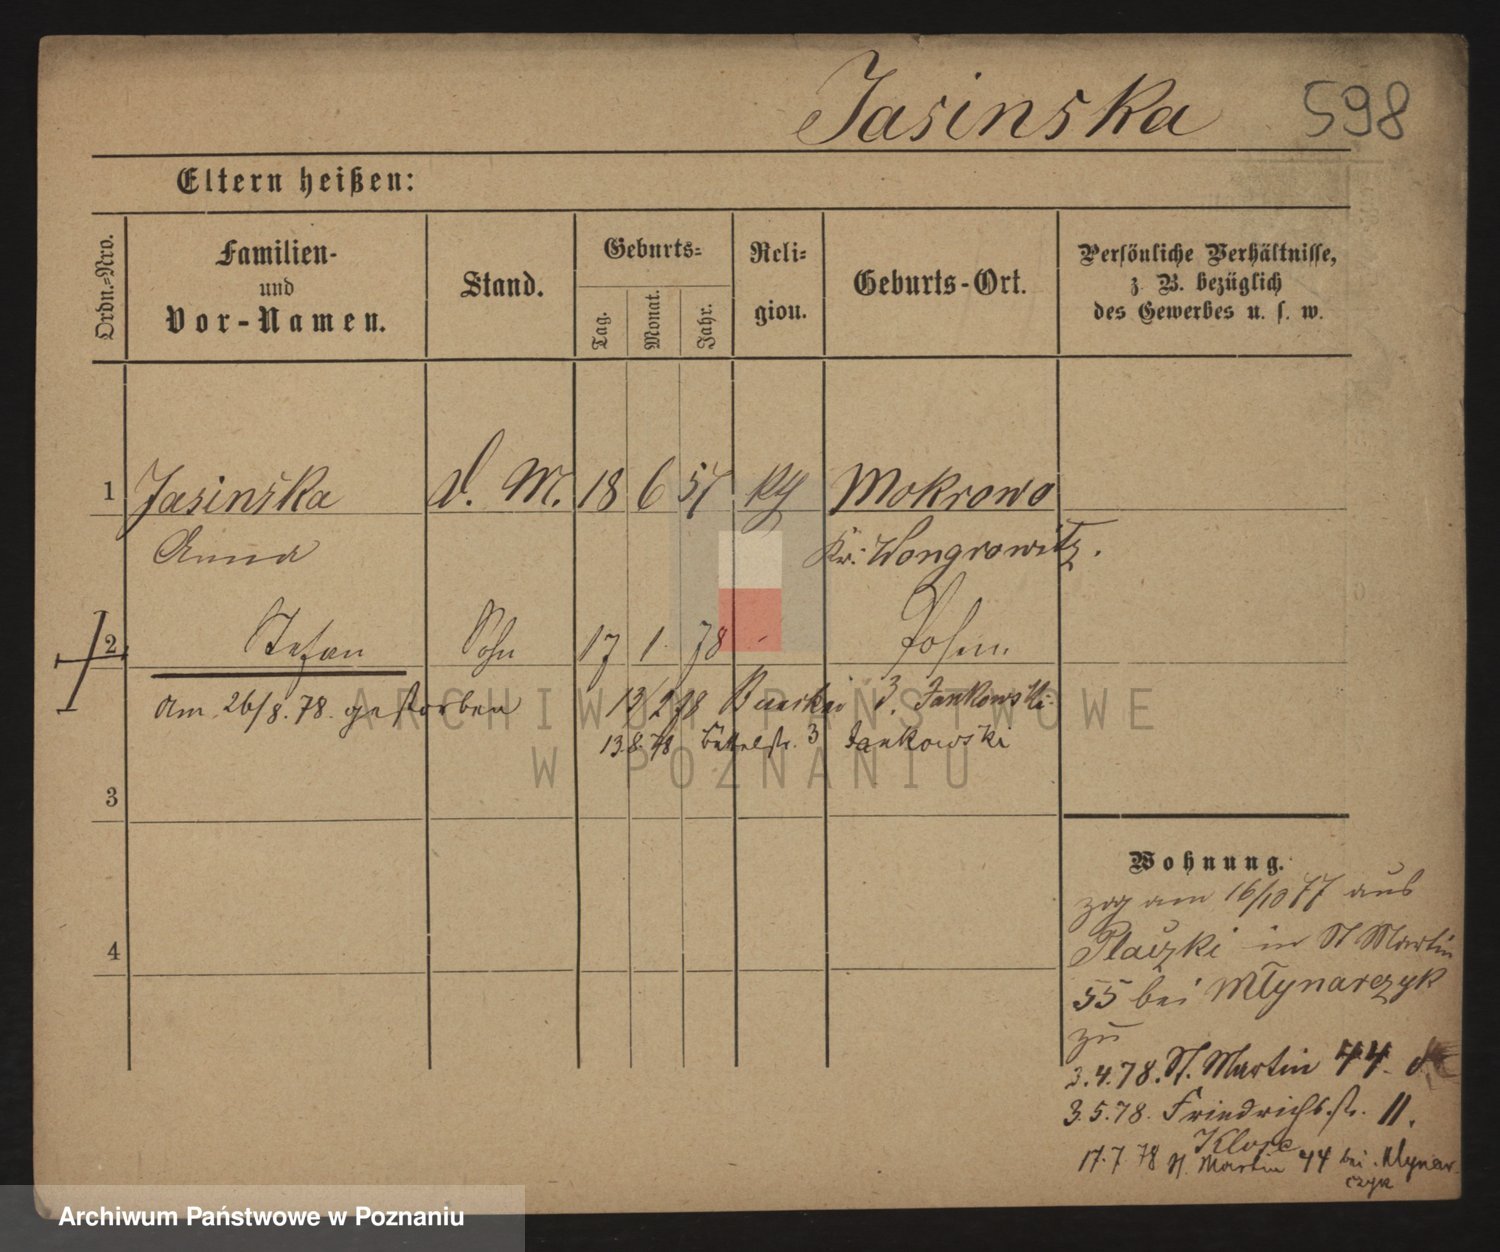 Jasinska 598
Eltern heißen:
Ordn.-Nro.
Familien-
und
Vor-Namen.
Stand.
Geburts-
Tag.
Monat.
Jahr.
Reli-
gion.
Geburts-Ort.
Persönliche Verhältnisse,
z. B. bezüglich
des Gewerbes u. s. w.
1 Jasinska d. M. 18 6 57 kth Mokrowo
Anna Kr: Wongrowitz.
2 Stefan Sohn 17 1 78 - Posen
am 26/8.78. gestorben 13/2 78 3. Jankowski
13.8.78 Büttelstr. 3 Jankowski
3
4
Wohnung.
zog am 16/10 77 aus
in St Martin
55 bei Młynarczyk
zu
3.4.78. St. Martin 44.
3.5.78. Friedrichsstr. 11.
17.7.78 St. Martin 44 bei Mlynar
czyk
ARCHIWUM PAŃSTWOWE
W POZNANIU
Archiwum Państwowe w Poznaniu